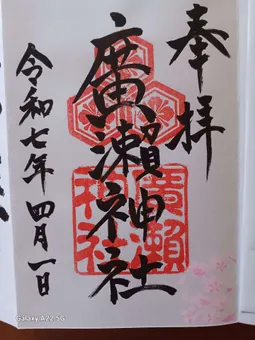 奉拝
廣瀬神社
令和七年四月一日
廣瀬
神社
Galaxy A22 5G